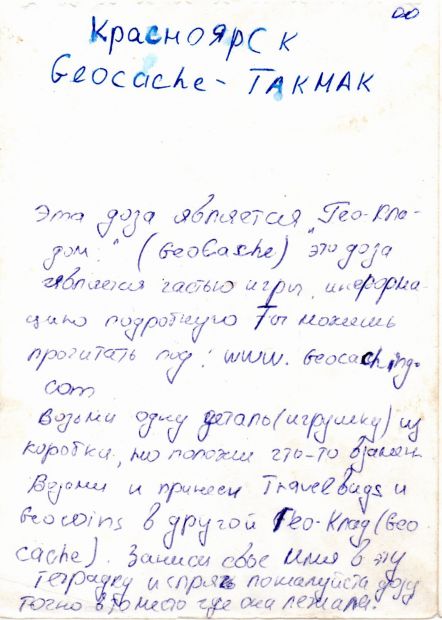 00
Красноярск
Geocache - ТАКМАК
Эта доза является „Гео-Кла-
дом." (GeoCashe) это доза
является частью игры, информа-
цию подробную Ты можешь
прочитать под: www. Geocaching.
com
Возьми одну деталь (игрушку) из
коробки, но положи что-то взамен
Возьми и принеси Travelbugs и
Geocoins в другой Гео-Клад (Geo
cache). Запиши свое имя в эту
тетрадку и спрячь пожалуйста дозу
точно в то место где она лежала.